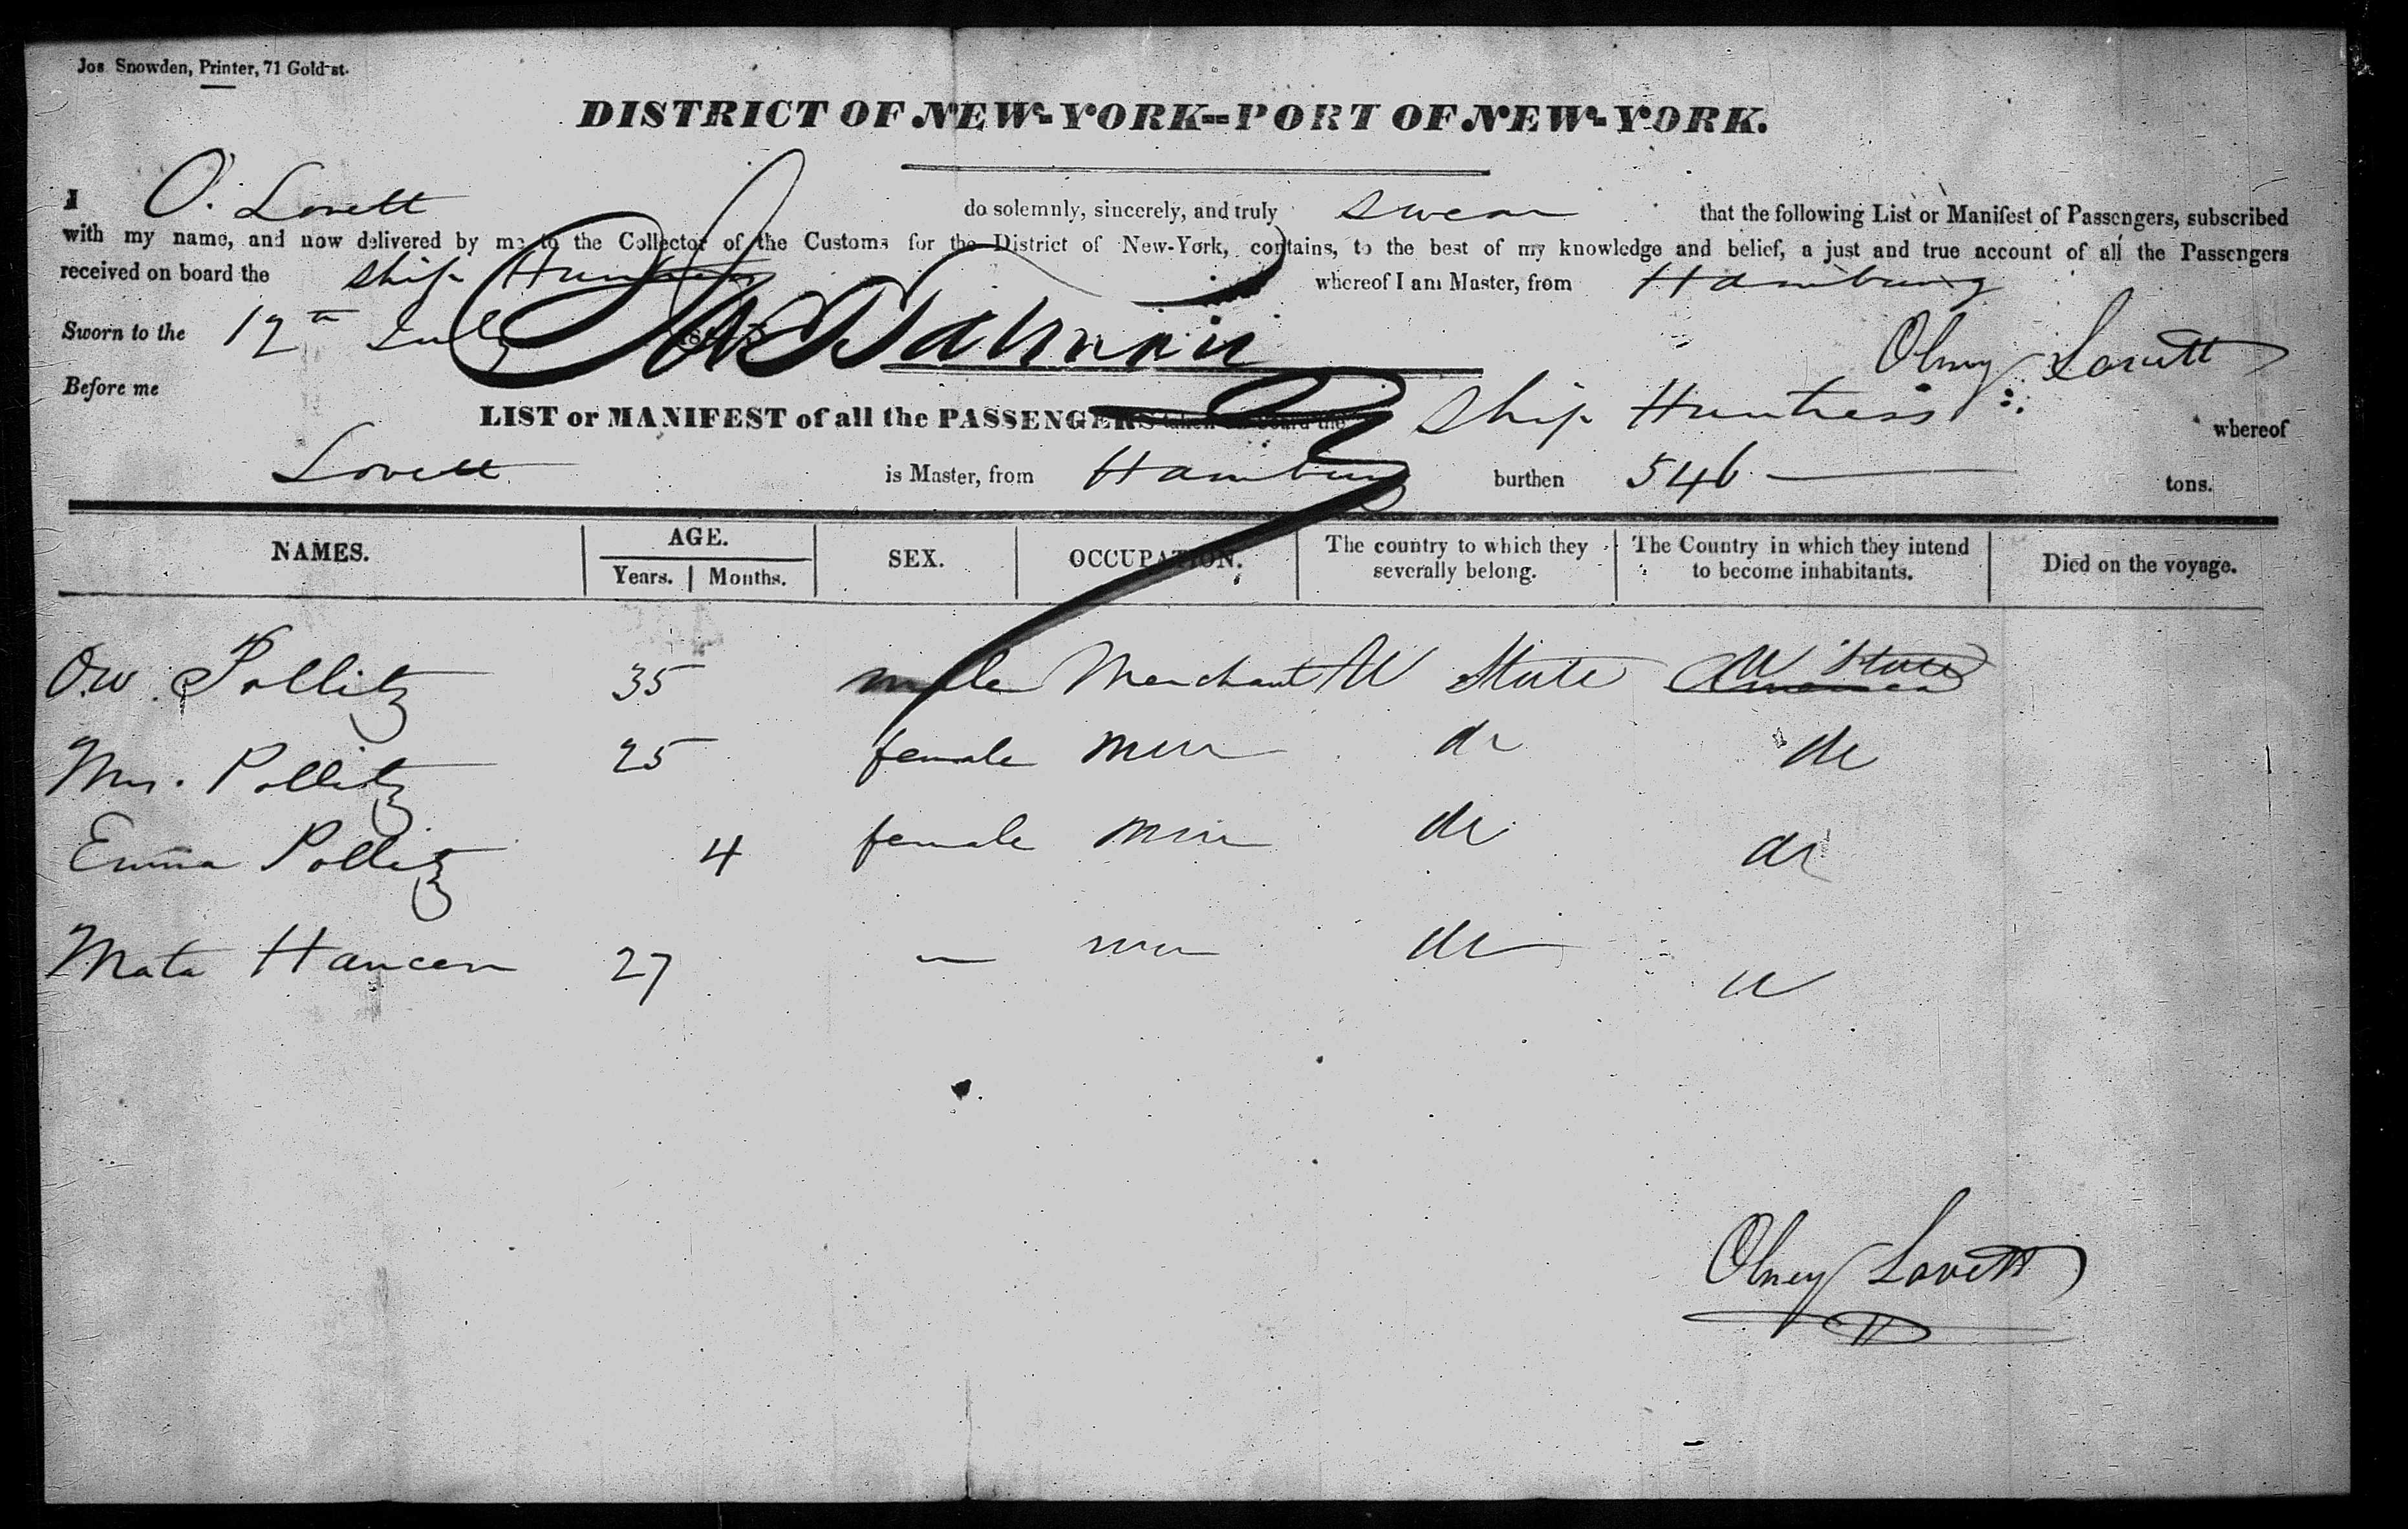 Jos Snowden, Printer, 71 Gold-st.
DISTRICT OF NEW-YORK--PORT OF NEW-YORK.
I O. Lovett do solemnly, sincerely, and truly swear that the following List or Manifest of Passengers, subscribed
with my name, and now delivered by me to the Collector of the Customs for the District of New-York, contains, to the best of my knowledge and belief, a just and true account of all the Passengers
received on board the Ship Huntress whereof I am Master, from Hamburg
Sworn to the 12th July Olney Lovett
Before me
LIST or MANIFEST of all the PASSENGERS taken on board the Ship Huntress whereof
Lovett is Master, from Hamburg burthen 546 tons.
NAMES. AGE. Years. Months. SEX. OCCUPATION. The country to which they severally belong. The Country in which they intend to become inhabitants. Died on the voyage.
O.W. Pollitz 35 male Merchant U State U State
Mrs. Pollitz 25 female do do
Emma Pollitz 4 female do do
Mata Hancen 27 do
Olney Lovett